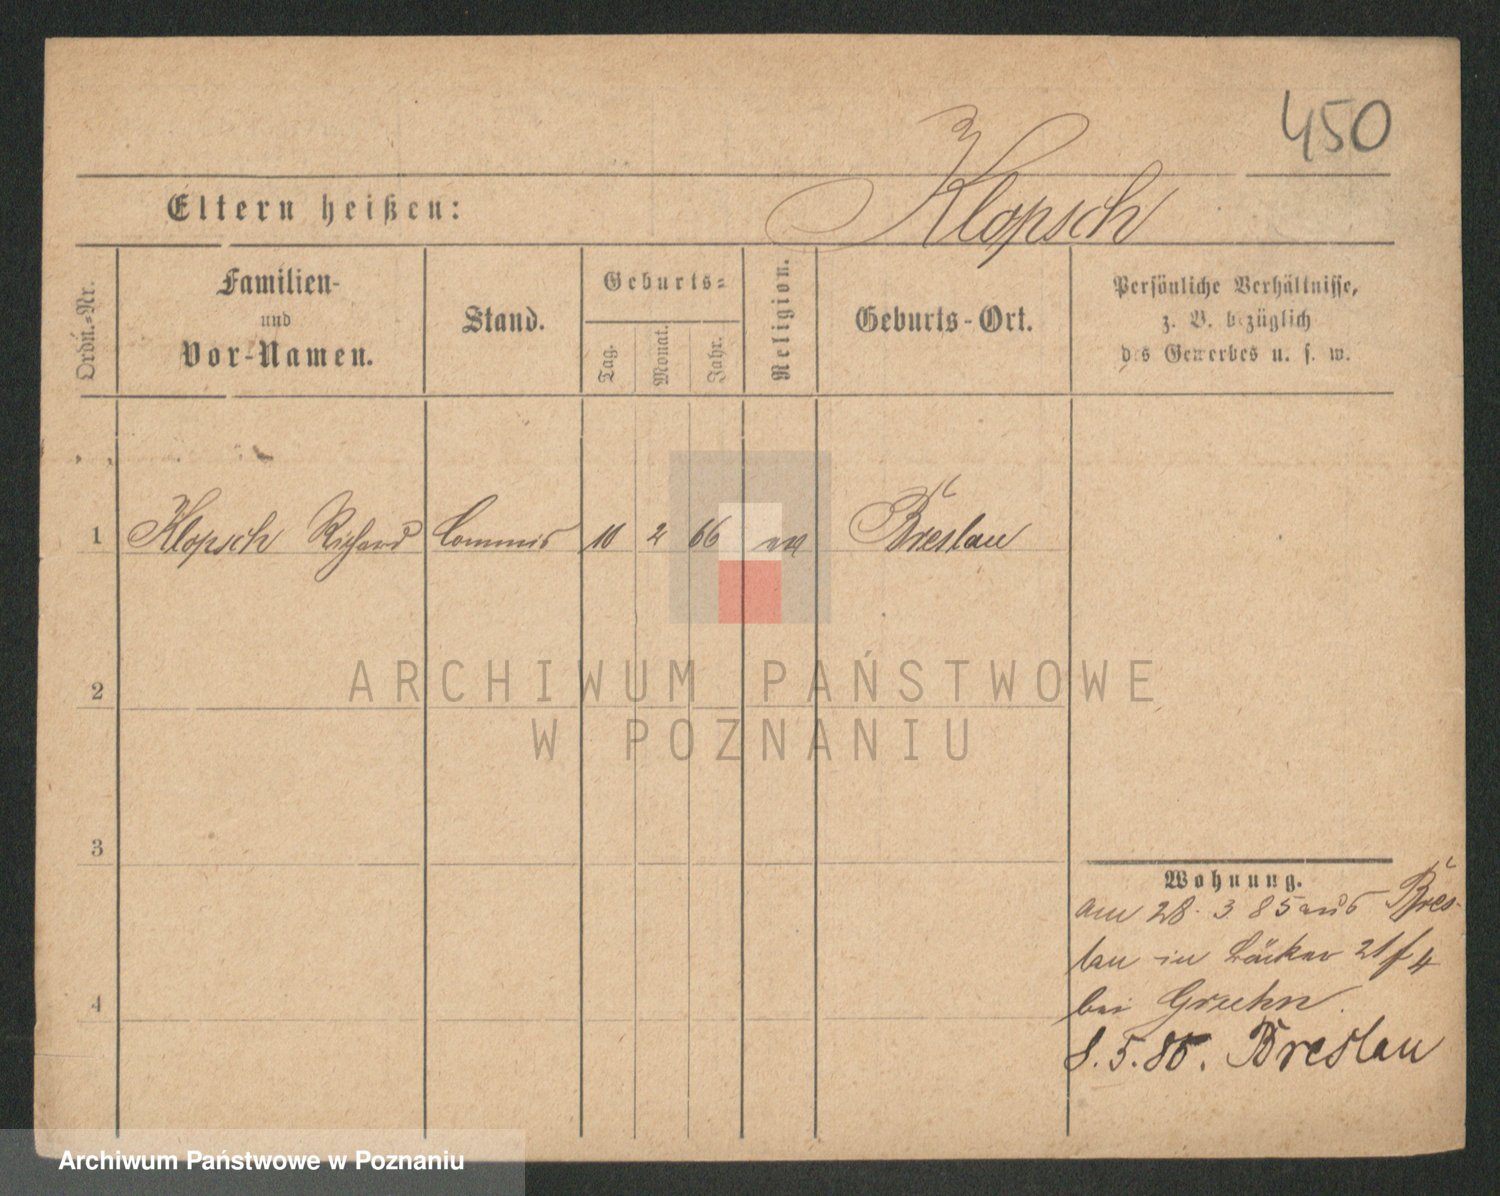 450
Klopsch
Eltern heißen:
Ordn.-Nr.
Familien-
und
Vor-Namen.
Stand.
Geburts-
Tag.
Monat.
Jahr.
Religion.
Geburts-Ort.
Persönliche Verhältnisse,
z. B. bezüglich
des Gewerbes u. s. w.
1 Klopsch Richard Commis 10 2 66 ev Breslau
2
3
4
Wohnung.
am 28. 3 85 aus Bres-
lau in Bäcker 21/4
bei Gruhn.
8.5.85. Breslau
ARCHIWUM PAŃSTWOWE
W POZNANIU
Archiwum Państwowe w Poznaniu